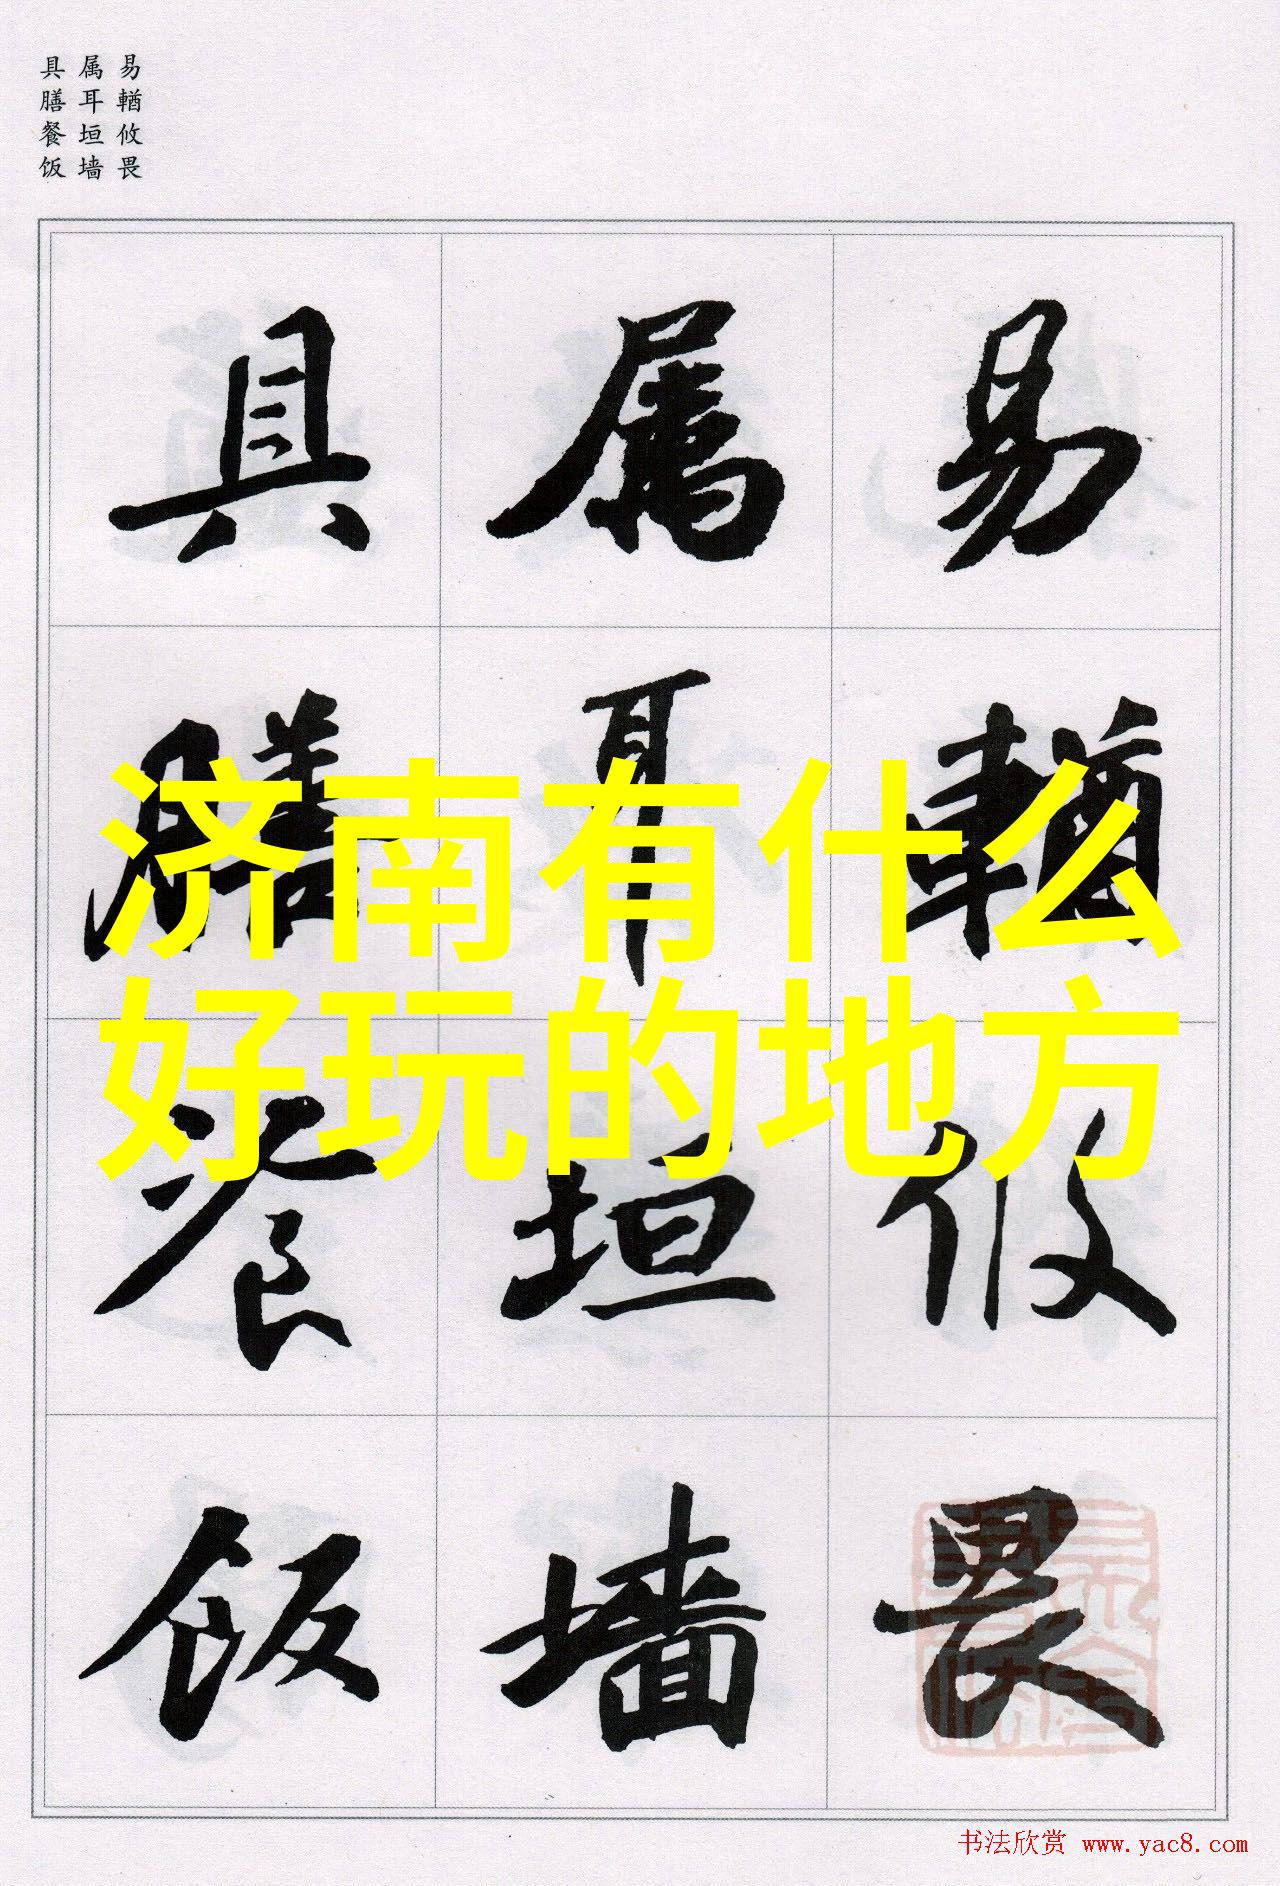 易輶攸畏
属耳垣墙
具膳餐饭
易輶攸畏
属耳垣墙
具膳餐饭
济南有什么
好玩的地方
书法欣赏 www.yac8.com